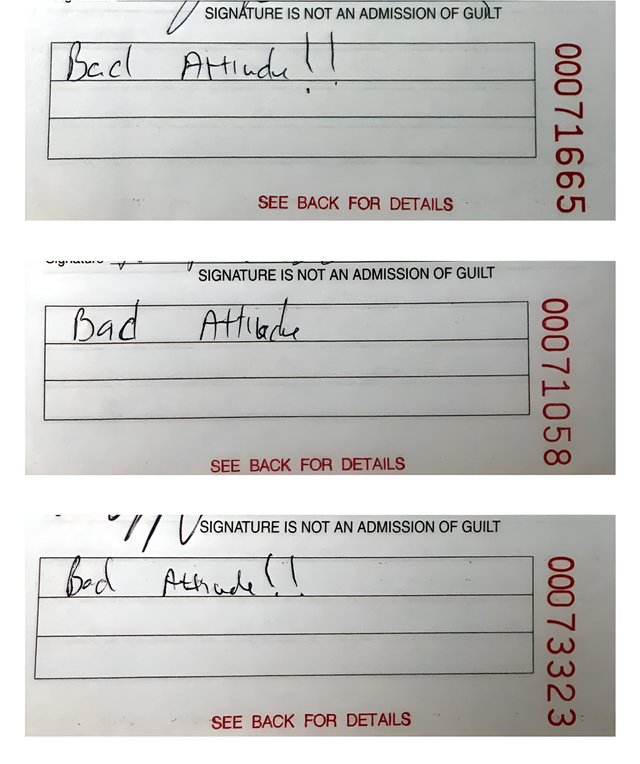 SIGNATURE IS NOT AN ADMISSION OF GUILT
Bad Attitude!!
SEE BACK FOR DETAILS
00071665
Signature
SIGNATURE IS NOT AN ADMISSION OF GUILT
Bad Attitude
SEE BACK FOR DETAILS
00071058
SIGNATURE IS NOT AN ADMISSION OF GUILT
Bad Attitude!!
SEE BACK FOR DETAILS
00073323